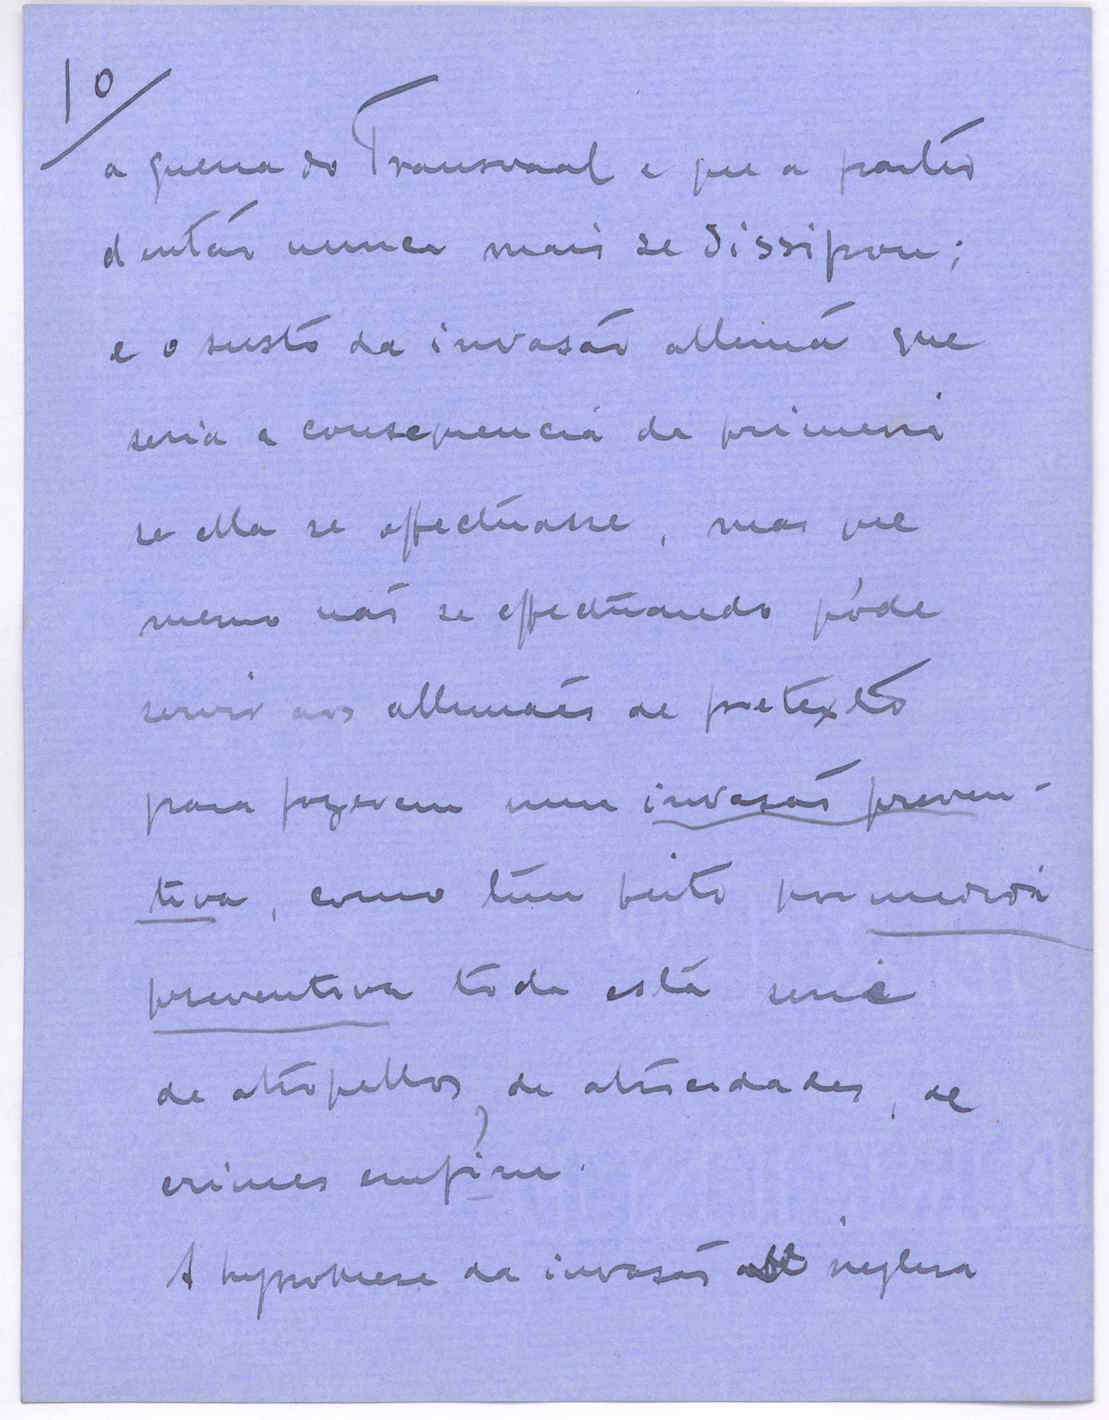 10
a guerra do Transvaal e que a partir
d'então nunca mais se dissipou;
e o susto da invasão allemã que
seria a consequencia da primeira
se ella se effectuasse, mas que
mesmo não se effectuando póde
servir aos allemães de pretexto
para fazerem uma invasão preven-
tiva, como têm feito por medida
preventiva toda esta serie
de atropellos, de atrocidades, de
crimes emfim.
A hypothese da invasão ingleza